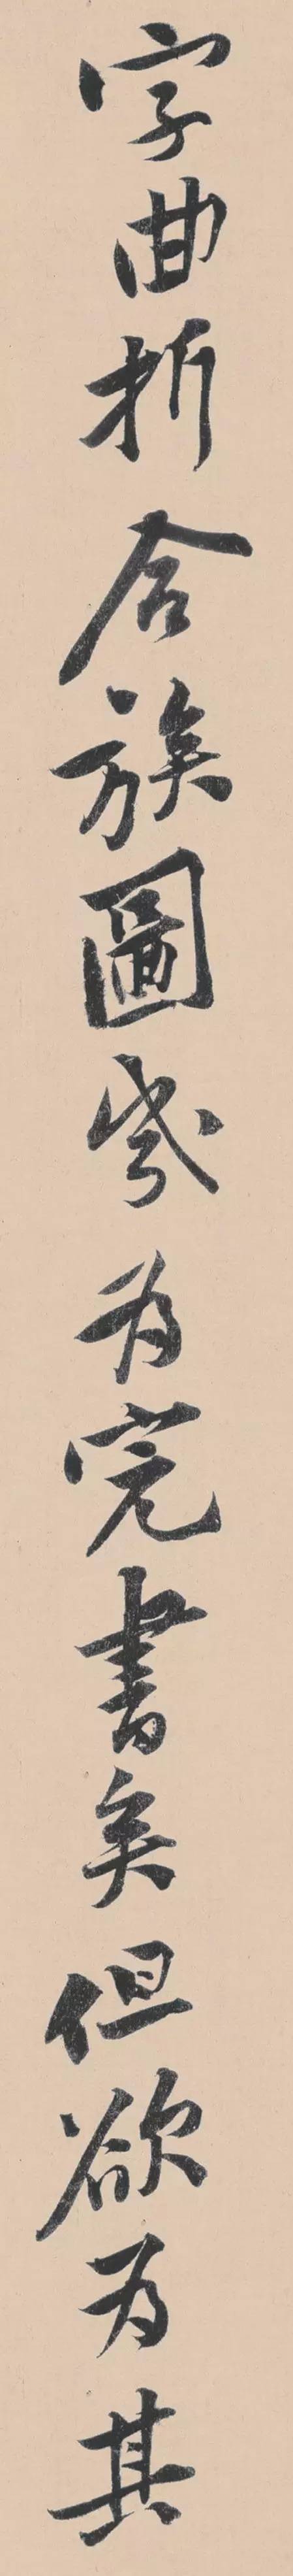 字曲折合族圖幾為完書矣但欲為其